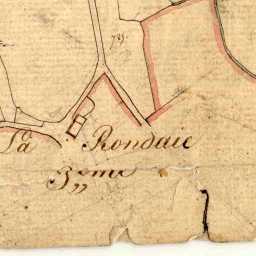 La Rondaie
3,,eme